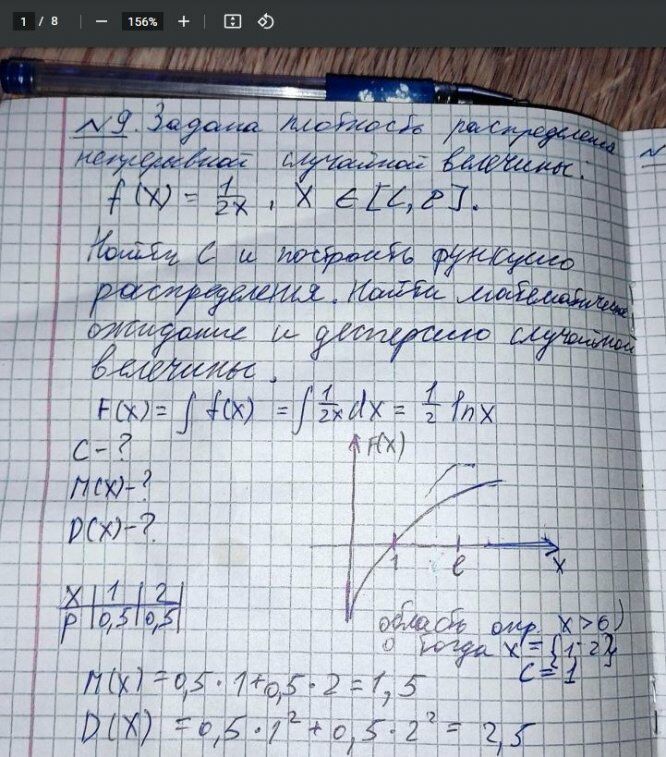 1 / 8 156%
№9. Задана плотность распределения
непрерывной случайной велечины:
f(x) = 1/2x, X ∈ [C, e].
Найти C и построить функцию
распределения. Найти математическое
ожидание и десперсию случайной
велечины.
F(x) = ∫ f(x) = ∫ 1/2x dx = 1/2 ln x
C - ?
M(x) - ?
D(x) - ?
F(x)
1 e x
X | 1 | 2 |
P | 0,5 | 0,5 |
область опр. x > 0
тогда x = {1; 2}
C = 1
M(x) = 0,5 · 1 + 0,5 · 2 = 1,5
D(x) = 0,5 · 1² + 0,5 · 2² = 2,5